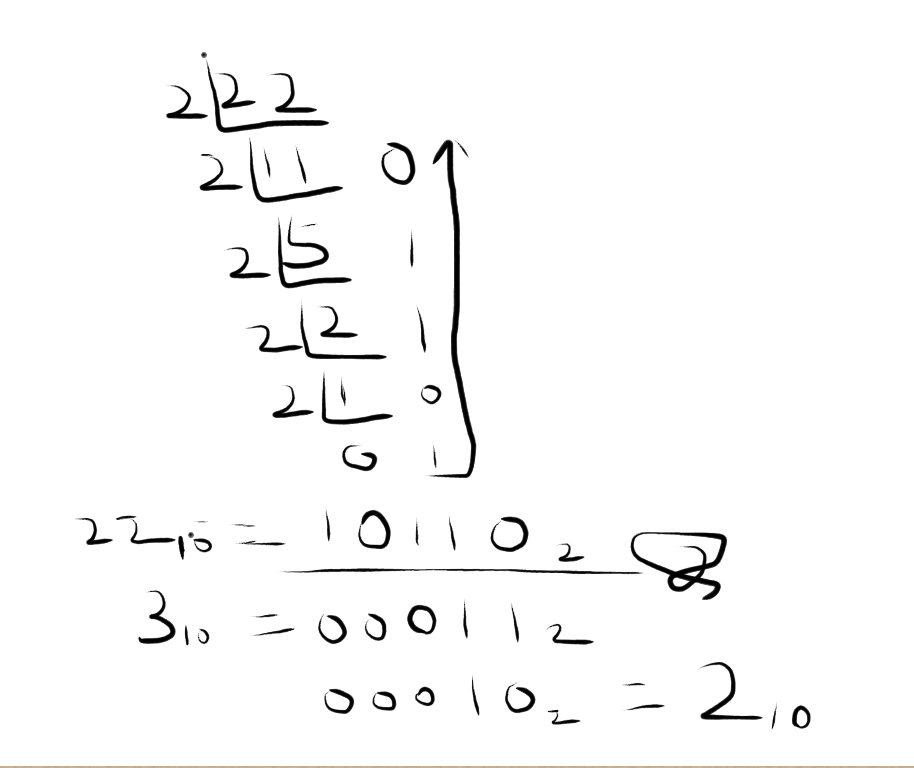 2 22
2 11 0
2 5 1
2 2 1
2 1 0
0 1
22₁₀ = 10110₂
3₁₀ = 00011₂
00010₂ = 2₁₀